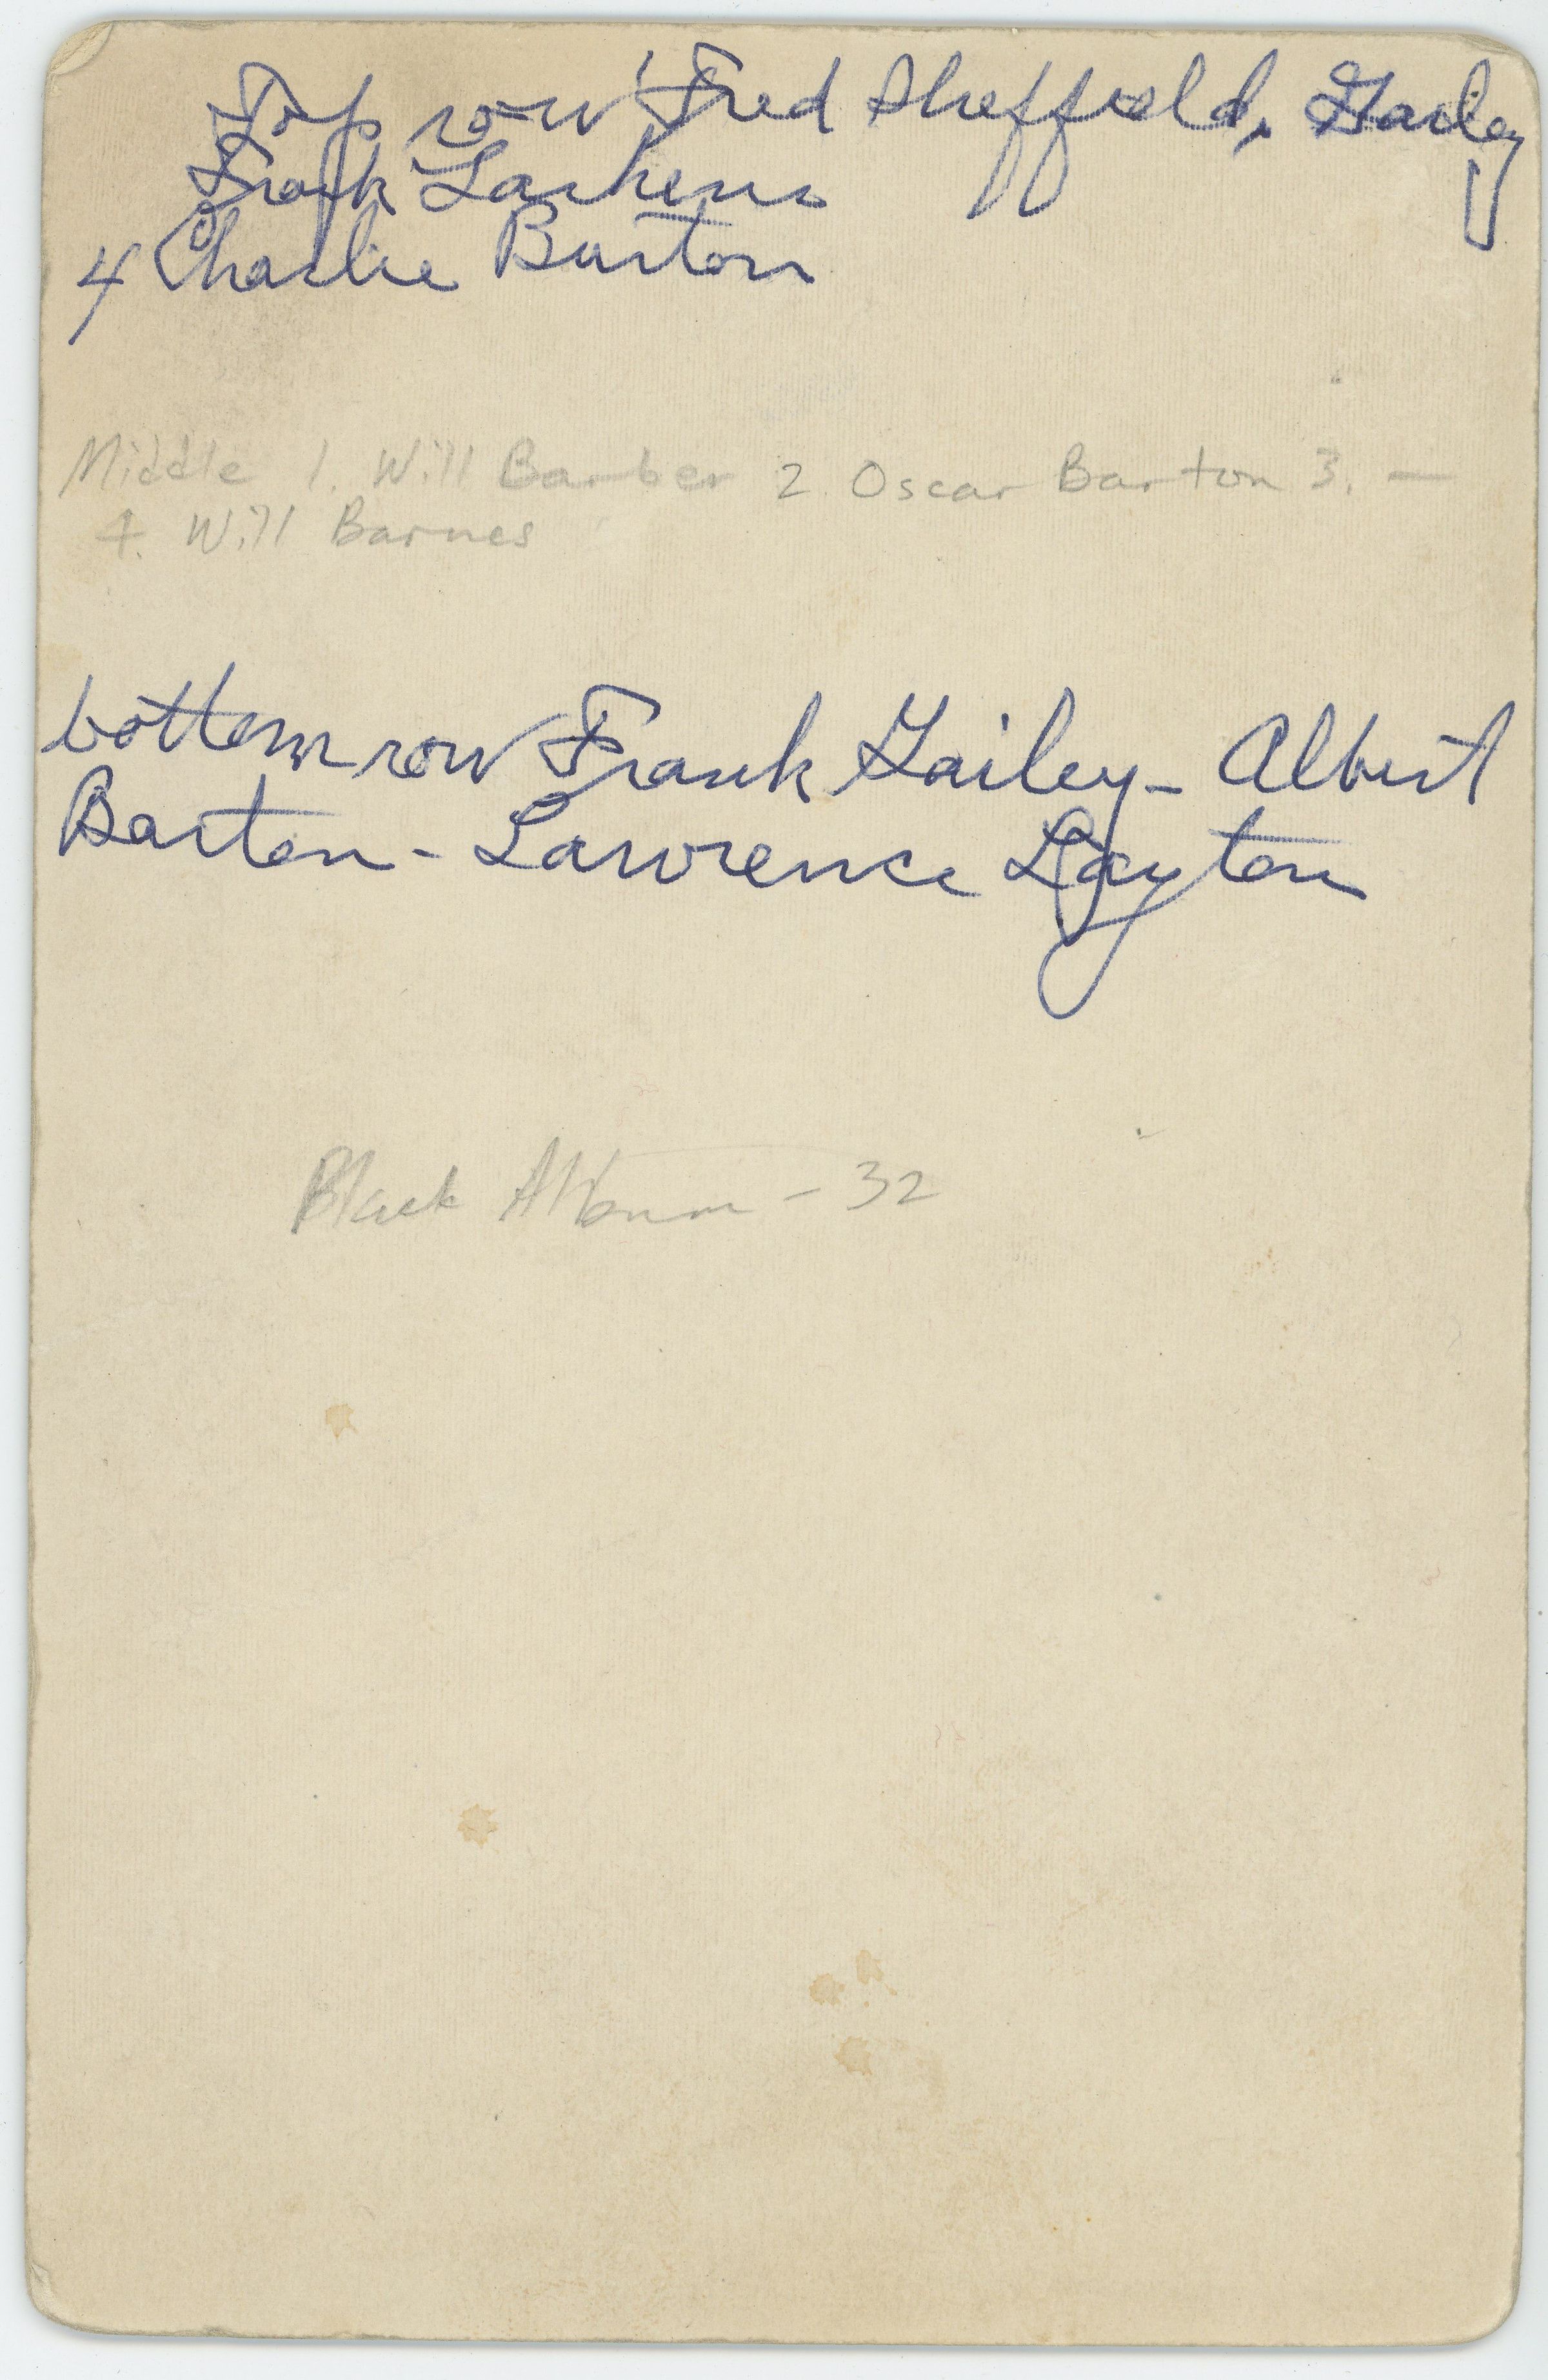 Top row 1 Fred Sheffield, Gailey
Frank Larkens
4 Charlie Barton
Middle 1. Will Barber 2. Oscar Barton 3. —
4. Will Barnes
bottom row Frank Gailey - Albert
Barton - Lawrence Layton
Black Album - 32